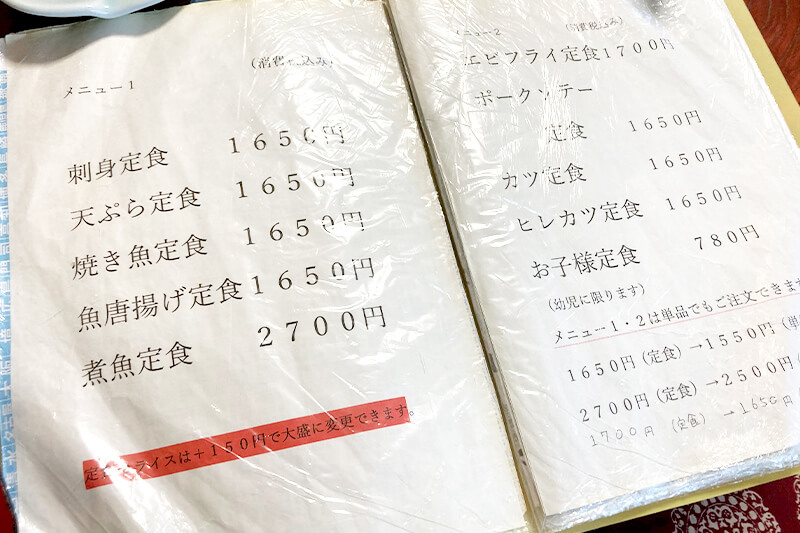 メニュー1
刺身定食 1650円
天ぷら定食 1650円
焼き魚定食 1650円
魚唐揚げ定食 1650円
煮魚定食 2700円
ライスは+150円で大盛に変更できます。
メニュー2 (消費税込み)
エビフライ定食1700円
ポークソテー
定食 1650円
カツ定食 1650円
ヒレカツ定食 1650円
お子様定食 780円
(幼児に限ります)
メニュー1・2は単品でもご注文できます
1650円(定食)→1550円(単
2700円(定食)→2500円(
1700円(定食)→1650円